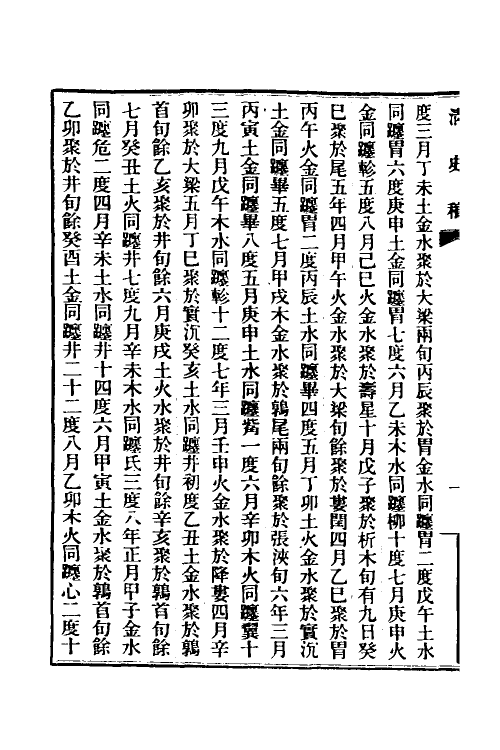 清史稿
一
度三月丁未土金水聚於大梁兩旬丙辰聚於胃金水同躔胃二度戊午土水
同躔胃六度庚申土金同躔胃七度六月乙未木水同躔柳十度七月庚申火
金同躔軫五度八月己巳火金水聚於壽星十月戊子聚於析木旬有九日癸
巳聚於尾五年四月甲午火金水聚於大梁旬餘聚於婁閏四月乙巳聚於胃
丙午火金同躔胃二度丙辰土水同躔畢四度五月丁卯土火金水聚於實沉
土金同躔畢五度七月甲戌木金水聚於鶉尾兩旬餘聚於張浹旬六年三月
丙寅土金同躔畢八度五月庚申土水同躔觜一度六月辛卯木火同躔翼十
三度九月戊午木水同躔軫十二度七年三月壬申火金水聚於降婁四月辛
卯聚於大梁五月丁巳聚於實沉癸亥土水同躔井初度乙丑土金水聚於鶉
首旬餘乙亥聚於井旬餘六月庚戌土火水聚於井旬餘辛亥聚於鶉首旬餘
七月癸丑土火同躔井七度九月辛未木水同躔氐三度八年正月甲子金水
同躔危二度四月辛未土水同躔井十四度六月甲寅土金水聚於鶉首旬餘
乙卯聚於井旬餘癸酉土金同躔井二十二度八月乙卯木火同躔心二度十